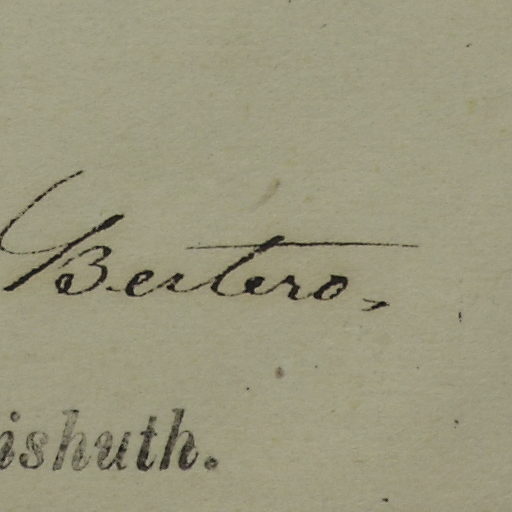 Bertero,
ishuth.